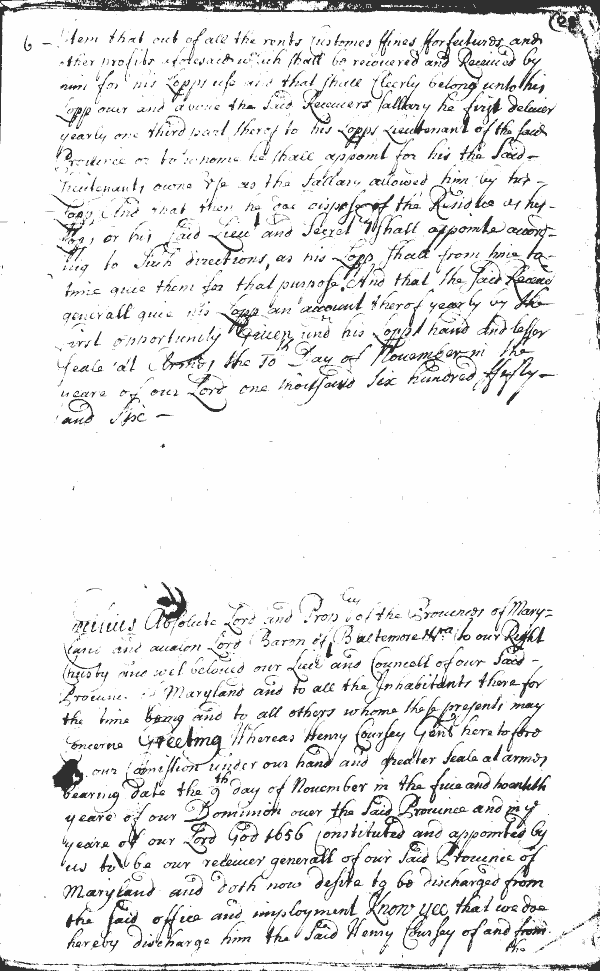 6 - Item that out of all the rents Customes ffines fforfeitures and
other profits aforesaid which shall be recovered and Received by
him for his Lopps use and that shall Cleerly belong unto his
Lopp over and above the Said Receivers Sallary he first deliver
yearly one third part thereof to his Lopps Lieutenant of the said
Province or to whome he shall appoint for his the Said -
Lieutenants owne use as the Sallary allowed him by his -
Lopp, And that then he doe dispose of the Residue as his
Lopp, or his Said Lieut and Secret shall appointe accor=
ing to Such directions, as his Lopp shall from time to-
time give them for that purpose, And that the said Receiv
generall give his Lopp an account thereof yearly by the
first opportunity Given under his Lopps hand and lesser
seale at Armes the 10th Day of November in the
yeare of our Lord one thousand Six hundred ffifty -
and Six -
Absolute Lord and Prop of the Provinces of Mary=
land and avalon Lord Baron of Baltemore &ca to our Right
trusty and wel beloved our Lieut and Councell of our Said -
Province of Maryland and to all the Inhabitants there for
the time being and to all others whome these presents may
Concerne Greeting Whereas Henry Coursey Gent heretofore
our Comission under our hand and greater Seale at armes
bearing date the 9th day of November in the five and twentith
yeare of our Dominion over the Said Province and in ye
yeare of our Lord God 1656 Constituted and appointed by
us to be our receiver generall of our Said Province of
Maryland and doth now desire to be discharged from
the said office and imployment Know yee that we doe
hereby discharge him the Said Henry Coursey of and from
the